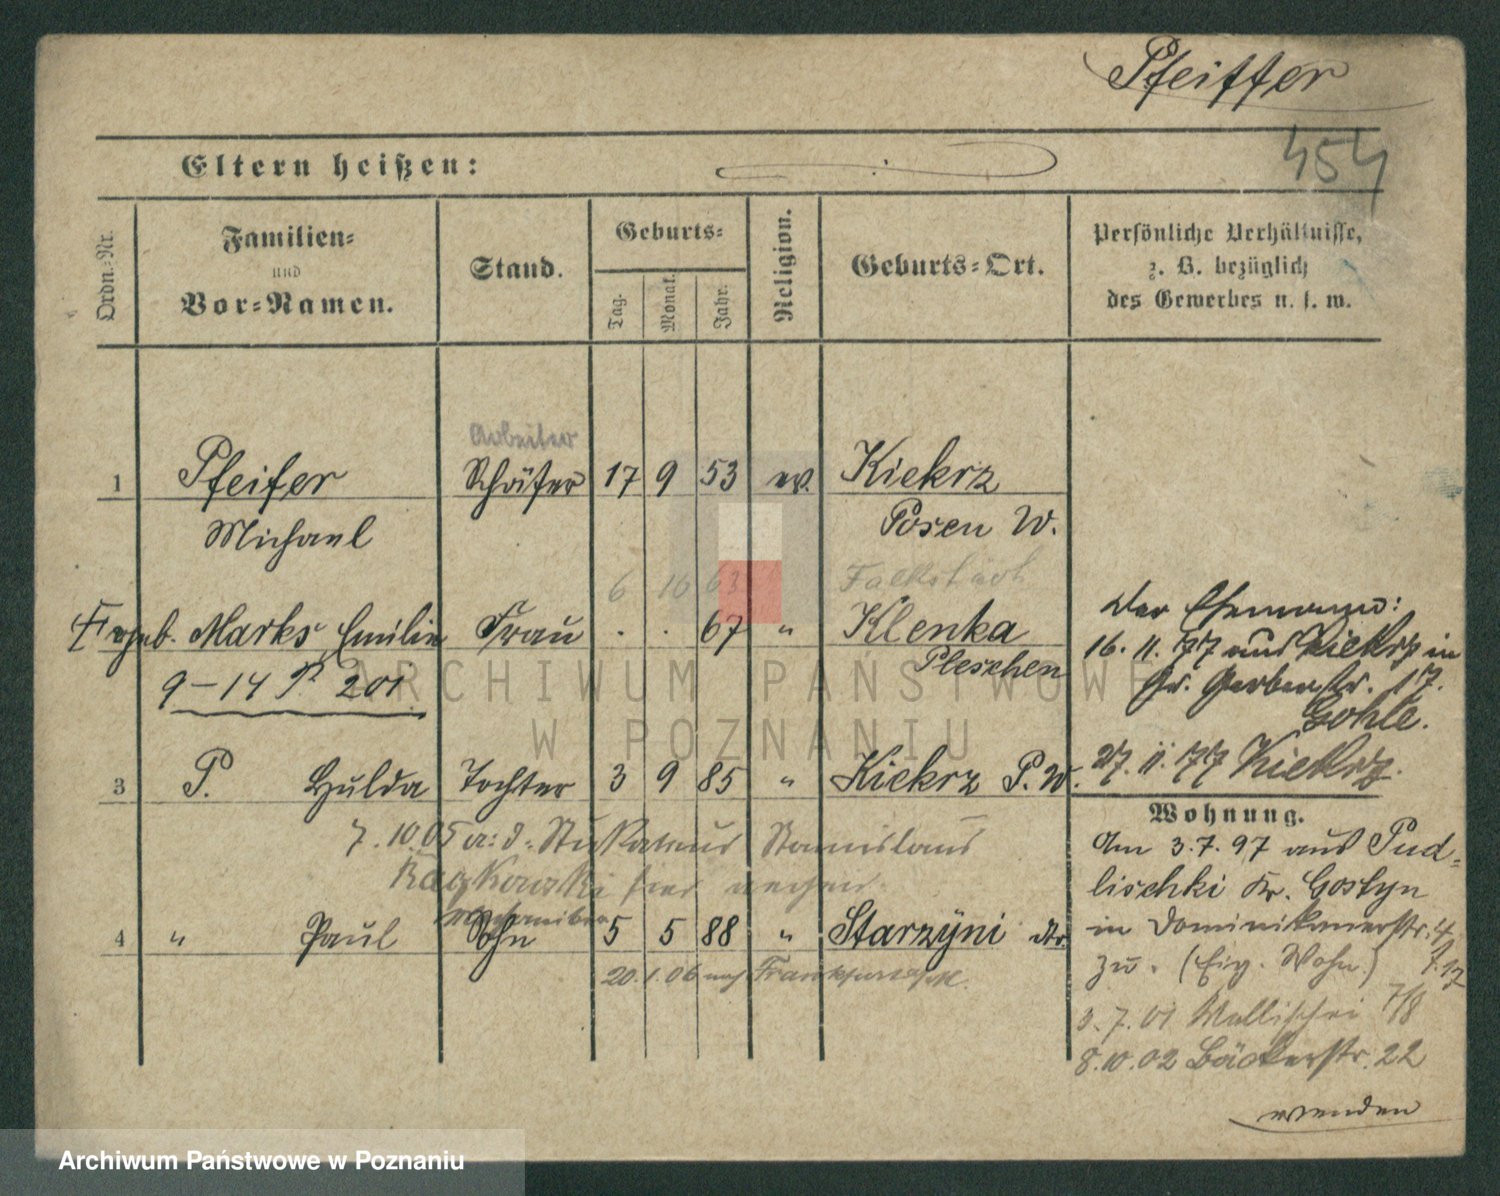 Pfeiffer
454
Eltern heißen:
Ordn.-Nr.
Familien-
und
Vor-Namen.
Stand.
Geburts-
Tag.
Monat.
Jahr.
Religion.
Geburts-Ort.
Persönliche Verhältnisse,
z. B. bezüglich
des Gewerbes u. s. w.
Arbeiter
1 Pfeifer Schäfer 17 9 53 ev. Kiekrz
Michael Posen W.
6 10 63 Falkstädt
geb. Marks Emilie Frau . . 67 " Klenka
Pleschen
9-14 P 201
Der Ehemann:
16. 11. 77 aus Kiekrz in
Gr. Gerberstr. 17.
Gohle.
27. 11. 77 Kiekrz.
3 P. Hulda Tochter 3 9 85 " Kiekrz P. W.
7.10.05 a: d. Stukateur Stanislaus
hier
4 " Paul Sohn 5 5 88 " Starzÿni
20.1.06 nach Frankfurt
Wohnung.
Am 3.7.97 aus Pud-
lischki Kr. Gostyn
in Dominikanerstr. 4
zu. (Eig. Wohn.)
3.7.01 Wallischei 7/8
8.10.02 Bäckerstr. 22
wenden
ARCHIWUM PAŃSTWOWE
W POZNANIU
Archiwum Państwowe w Poznaniu